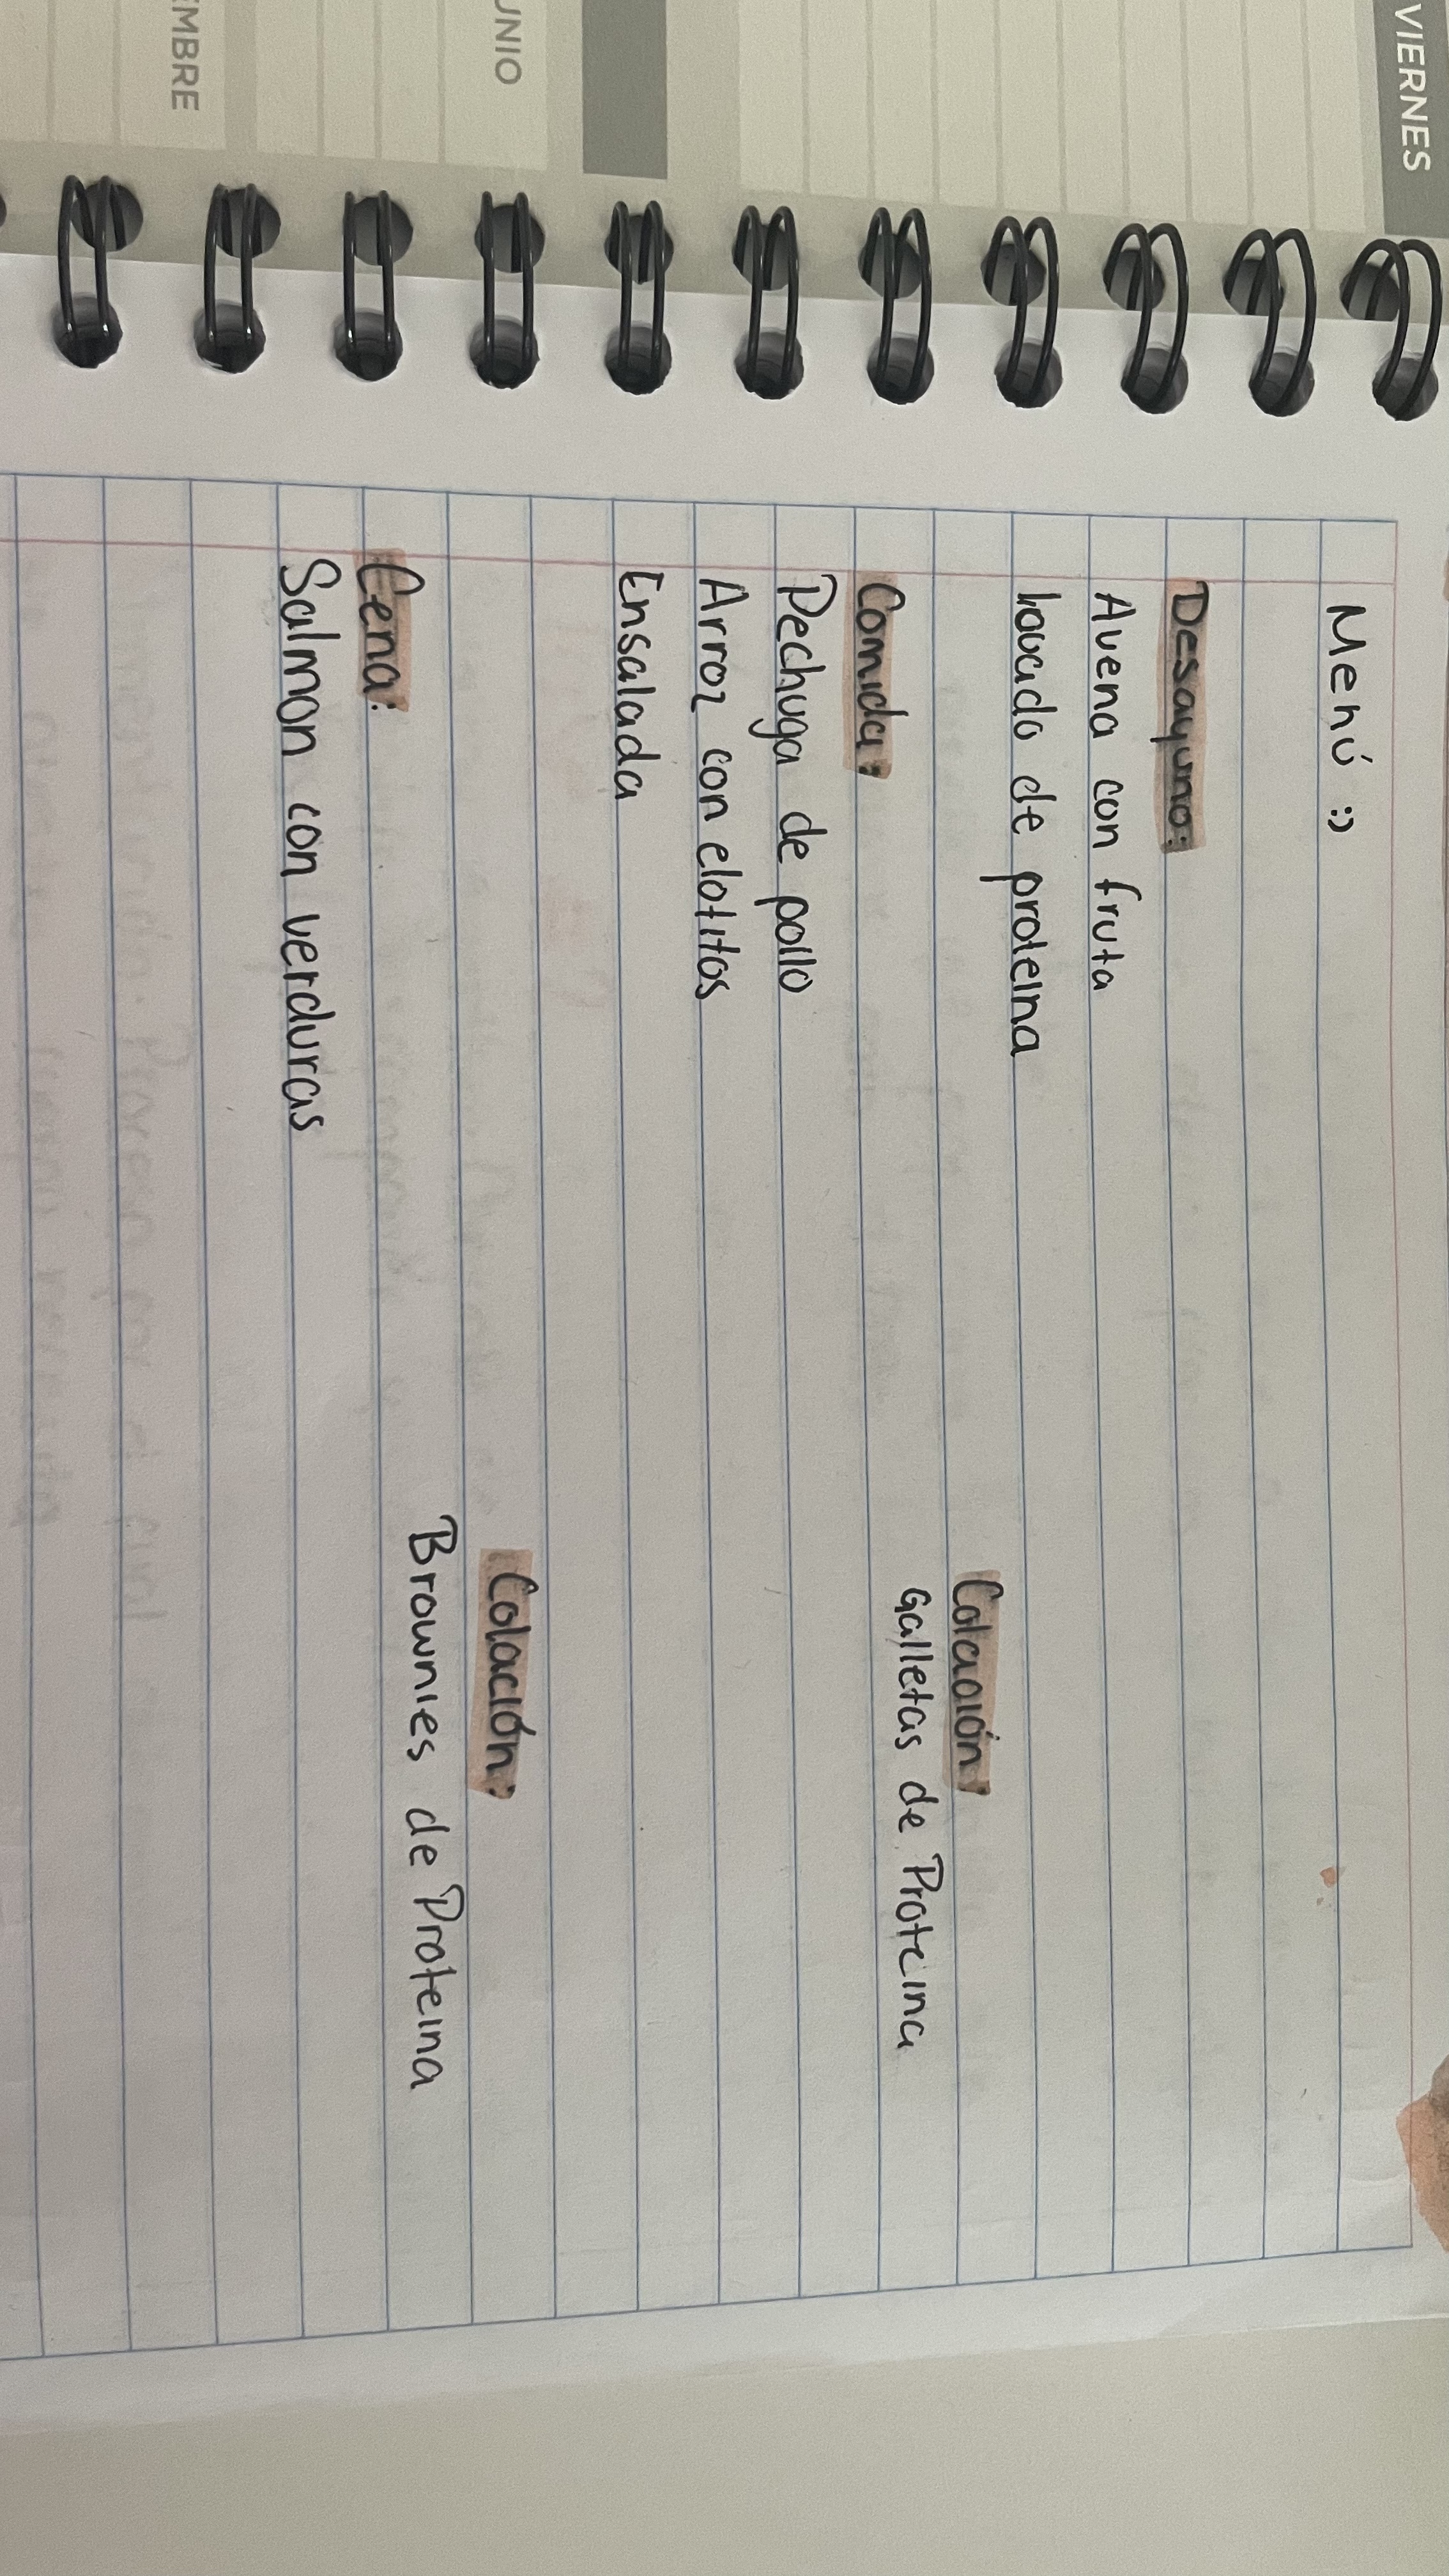 VIERNES
UNIO
EMBRE
Menú :)
Desayuno:
Avena con fruta
de proteina
Colación:
Galletas de Proteina
Comida:
Pechuga de pollo
Arroz con elotitos
Ensalada
Colación:
Brownies de Proteina
Cena:
Salmon con verduras